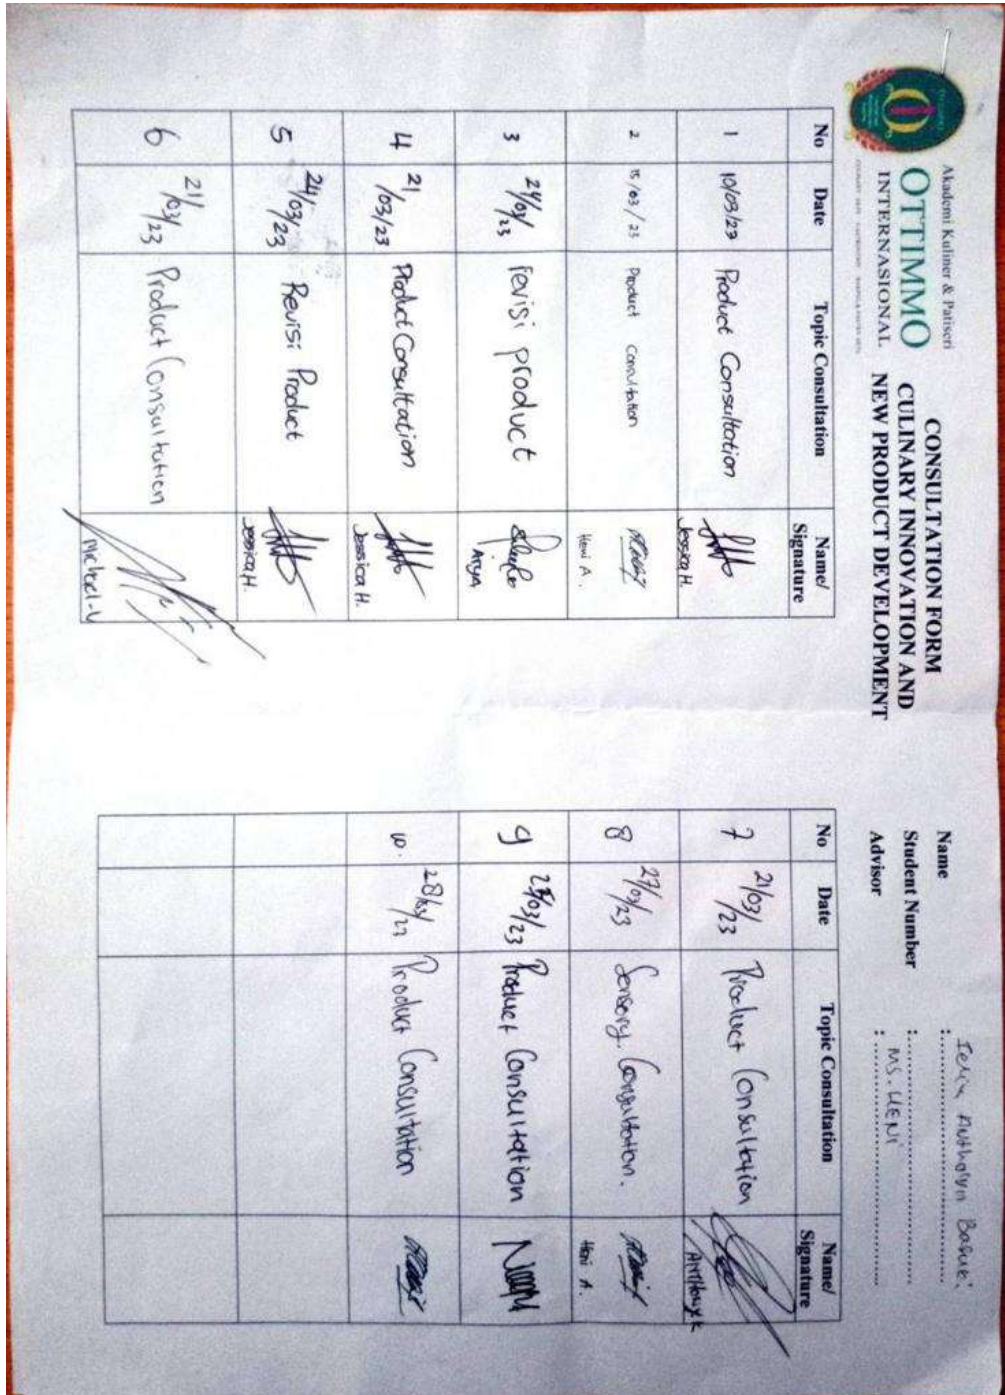 Akademi Kuliner & Patiseri
OTTIMMO
INTERNASIONAL
CONSULTATION FORM
CULINARY INNOVATION AND
NEW PRODUCT DEVELOPMENT
Name : Basuki
Student Number :
Advisor : MS. HENI
No Date Topic Consultation Name/ Signature
1 10/03/23 Product Consultation Jessica H.
2 15/03/23 Product Consultation Heni A.
3 24/03/23 revisi product Arya
4 21/03/23 Product Consultation Jessica H.
5 24/03/23 Revisi Product Jessica H.
6 21/03/23 Product Consultation Michael-V
No Date Topic Consultation Name/ Signature
7 21/03/23 Product Consultation Anthony K
8 27/03/23 Sensory Consultation. Heni A.
9 /03/23 Product Consultation
10. 28/03/23 Product Consultation